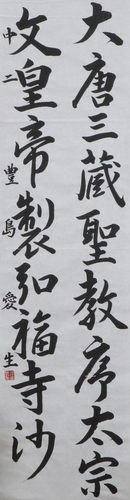 大唐三蔵聖教序太宗
文皇帝製弘福寺沙
中二 豊島愛生